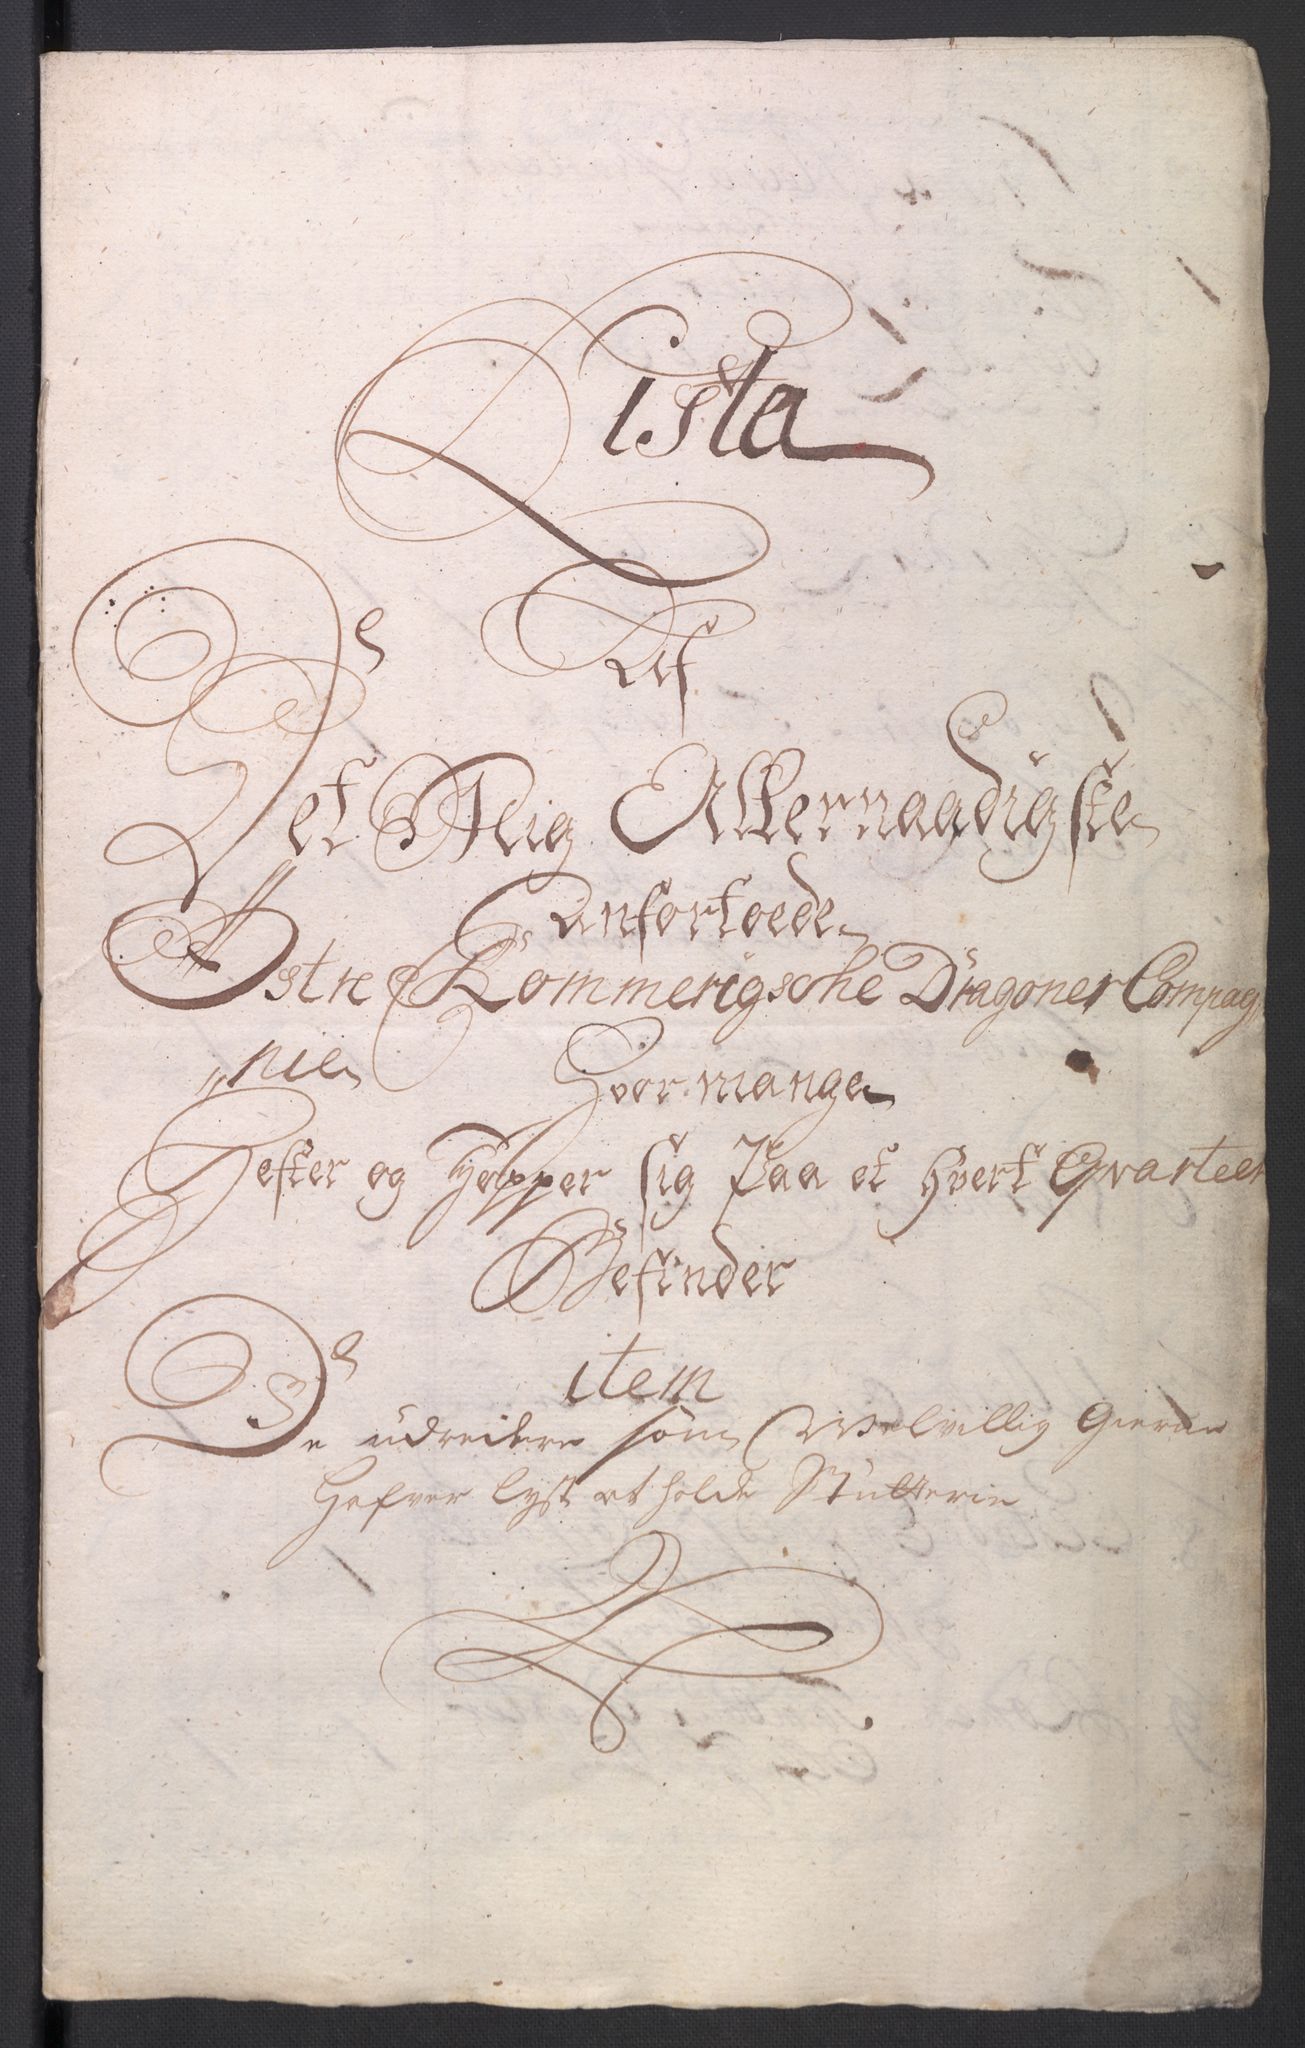 Lista
Af
Det Mig Allernaadigste
anfortroede
Østre Rommerigsche Dragoner Compag
"nie Hvor mange
Hester og Hopper sig Paa et hvert Qvarteer
Befinder
item
De udreidere som Velvillig Gierne
Hafver lyst at holde Stutterie